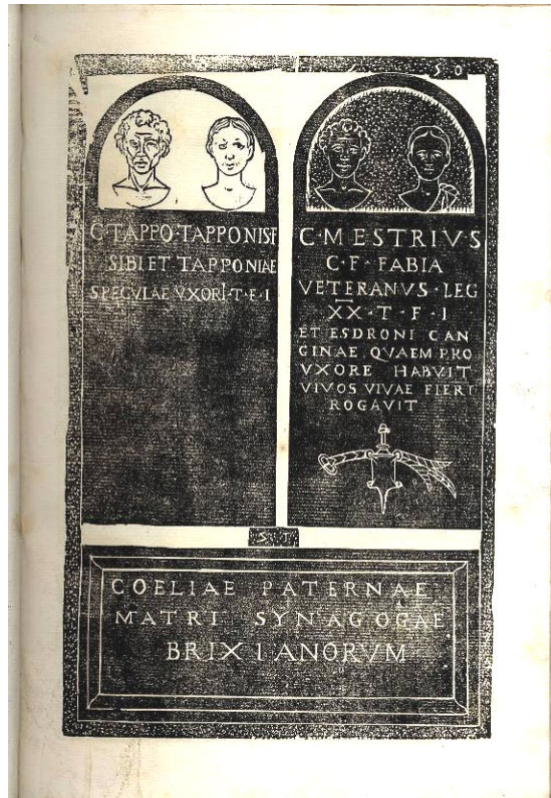 S · O
C · TAPPO · TAPPONIS F
SIBI ET TAPPONIAE
SPECVLAE VXORI · T · F · I
C · MESTRIVS
C · F · FABIA
VETERANVS · LEG
XX · T · F · I
ET ESDRONI CAN
GINAE QVAEM PRO
VXORE HABVIT
VIVOS VIVAE FIERI
ROGAVIT
S · T
COELIAE PATERNAE
MATRI SYNAGOGAE
BRIXIANORVM